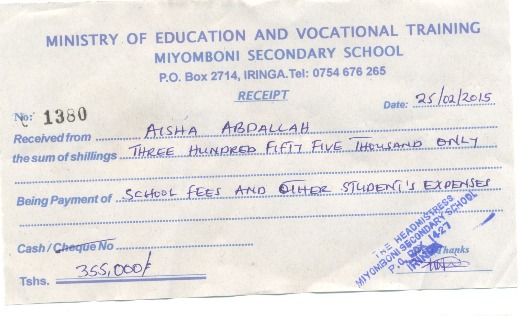 MINISTRY OF EDUCATION AND VOCATIONAL TRAINING
MIYOMBONI SECONDARY SCHOOL
P.O. Box 2714, IRINGA.Tel: 0754 676 265
RECEIPT
No: 1380
Date: 25/02/2015
Received from AISHA ABDALLAH
the sum of shillings THREE HUNDRED FIFTY FIVE THOUSAND ONLY
Being Payment of SCHOOL FEES AND OTHER STUDENT'S EXPENSES
Cash / Cheque No
THE HEADMISTRESS
MIYOMBONI SECONDARY SCHOOL
P.O. BOX 1427
IRINGA
Thanks
Tshs. 355,000/=